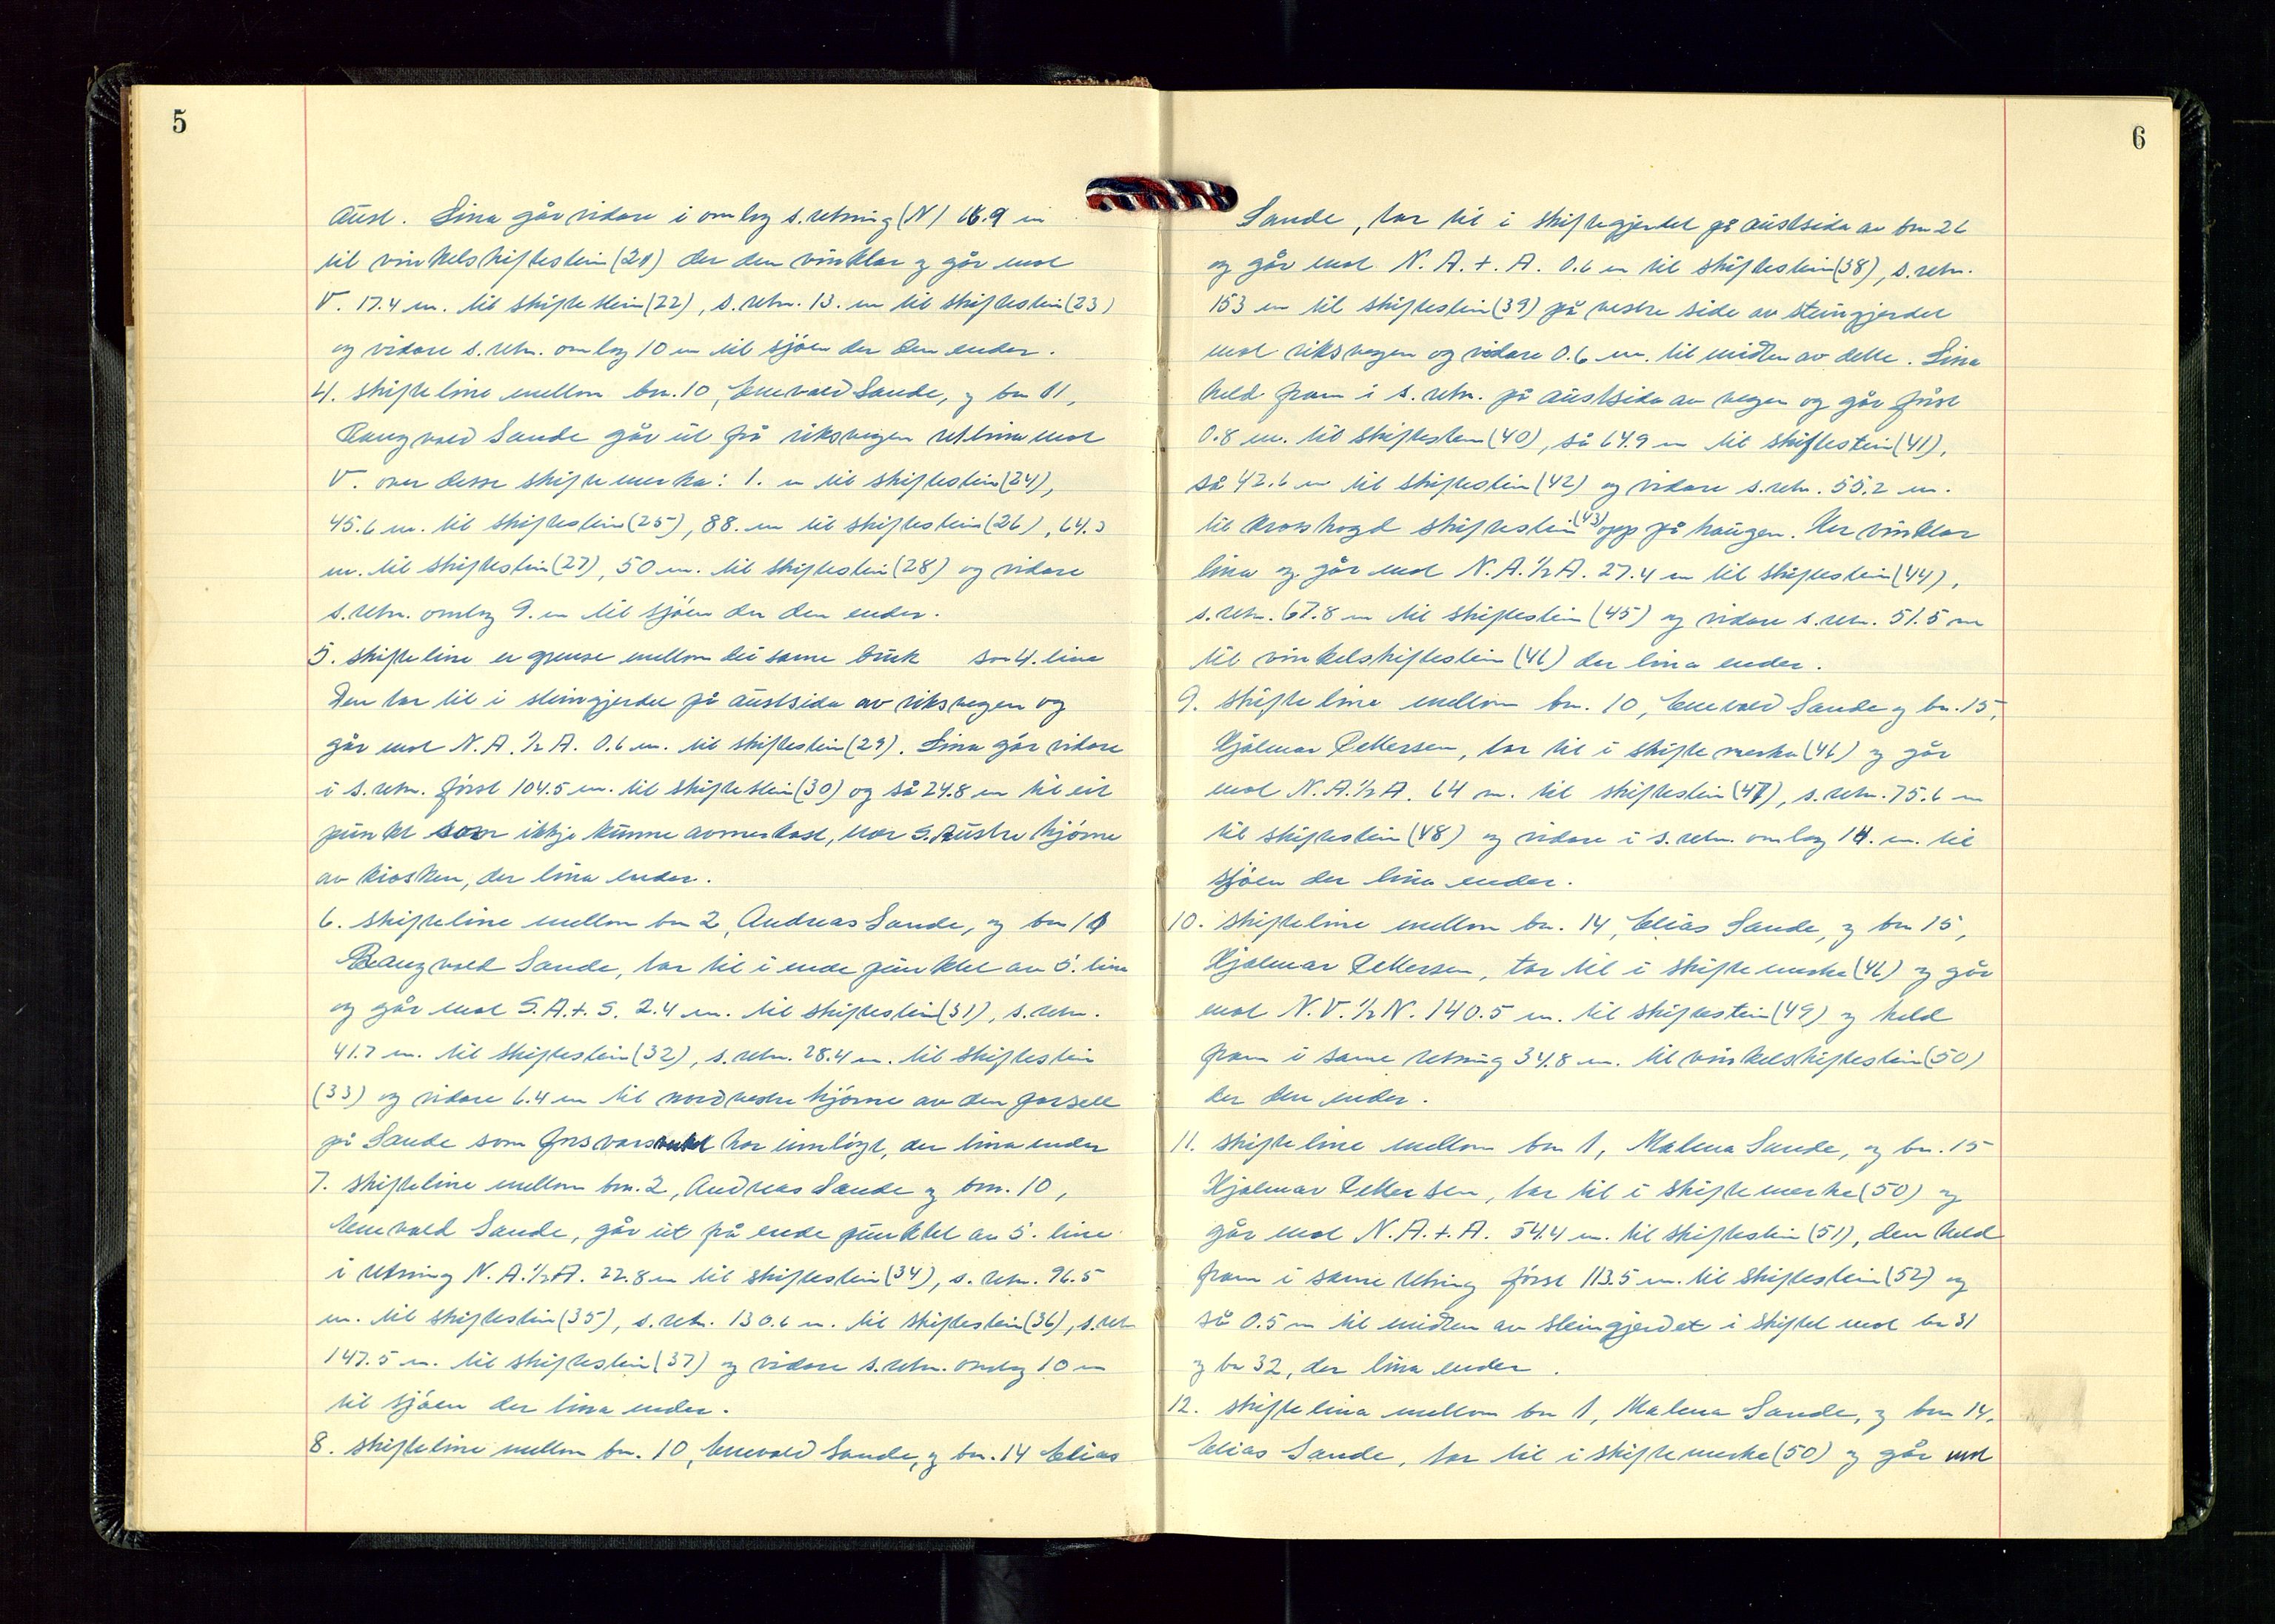 5
aust. Lina går vidare i omlag s. retning (N) 16.9 m
til vinkelskiftestein (21) der den vinklar og går mot
V. 17.4 m. til skiftestein (22), s. retn. 13. m til skiftestein (23)
og vidare s. retn. omlag 10 m til sjøen der den ender.
4. skifteline mellom bn. 10, Enevald Sande, og bn 11,
Rangvald Sande går ut frå riksvegen rettlina mot
V. over desse skiftemerka: 1. m til skiftestein (24),
45.6 m. til skiftestein (25), 88. m til skiftestein (26), 64.3
m. til skiftestein (27), 50 m. til skiftestein (28) og vidare
s. retn. omlag 9. m til sjøen der den ender.
5. skifteline er grense mellom dei same bruk som 4. line
Den tar til i steingjerdet på austsida av riksvegen og
går mot N.A. ½ A. 0.6 m. til skiftestein (29). Lina går vidare
i s. retn. først 104.5 m. til skiftestein (30) og så 24.8 m til eit
punkt som ikkje kunne avmerkast, nær S. Austre hjørne
av kiosken, der lina ender.
6. skifteline mellom bn 2, Andreas Sande, og bn 11
Rangvald Sande, tar til i ende punktet av 5. line
og går mot S.A.+. S. 2.4 m. til skiftestein (31), s. retn.
41.7 m. til skiftestein (32), s. retn. 28.4 m. til skiftestein
(33) og vidare 6.4 m til nordvestre hjørne av den parsell
på Sande som forsvaret har innløyst, der lina ender
7. skifteline mellom bn. 2, Andreas Sande og bn. 10,
Enevald Sande, går ut frå ende punktet av 5. line
i retning N.A. ½ A. 22.8 m til skiftestein (34), s. retn. 96.5
m. til skiftestein (35), s. retn. 130.6 m. til skiftestein (36), s. retn
147.5 m. til skiftestein (37) og vidare s. retn. omlag 10 m
til sjøen der lina ender.
8. skifteline mellom bn. 10, Enevald Sande, og bn. 14 Elias
6
Sande, tar til i skiftegjerdet på austsida av bn 26
og går mot N.A.+. A. 0.6 m til skiftestein (38), s. retn.
153 m til skiftestein (39) på vestre side av steingjerdet
mot riksvegen og vidare 0.6 m. til midten av dette. Lina
held fram i s. retn. på austsida av vegen og går først
0.8 m. til skiftestein (40), så 64.9 m til skiftestein (41),
så 42.6 m til skiftestein (42) og vidare s. retn. 55.2 m.
til krosshogd skiftestein (43) opp på haugen. Her vinklar
lina og går mot N.A. ½ A. 27.4 m til skiftestein (44),
s. retn. 67.8 m til skiftestein (45) og vidare s. retn. 51.5 m
til vinkelskiftestein (46) der lina ender.
9. skifteline mellom bn. 10, Enevald Sande og bn. 15,
Hjalmar Pettersen, tar til i skiftemerke (46) og går
mot N.A. ½ A. 64 m. til skiftestein (47), s. retn. 75.6 m
til skiftestein (48) og vidare i s. retn. omlag 14. m. til
sjøen der lina ender.
10. skifteline mellom bn. 14, Elias Sande, og bn 15,
Hjalmar Pettersen, tar til i skiftemerke (46) og går
mot N.V. ½ N. 140.5 m. til skiftestein (49) og held
fram i same retning 34.8 m. til vinkelskiftestein (50)
der den ender.
11. skifteline mellom bn 1, Malena Sande, og bn. 15
Hjalmar Pettersen, tar til i skiftemerke (50) og
går mot N.A.+. A. 54.4 m. til skiftestein (51), den held
fram i same retning først 113.5 m. til skiftestein (52) og
så 0.5 m til midten av steingjerdet i skiftet mot bn 31
og bn 32, der lina ender.
12. skiftelina mellom bn 1, Malena Sande, og bn 14,
Elias Sande, tar til i skiftemerke (50) og går mot